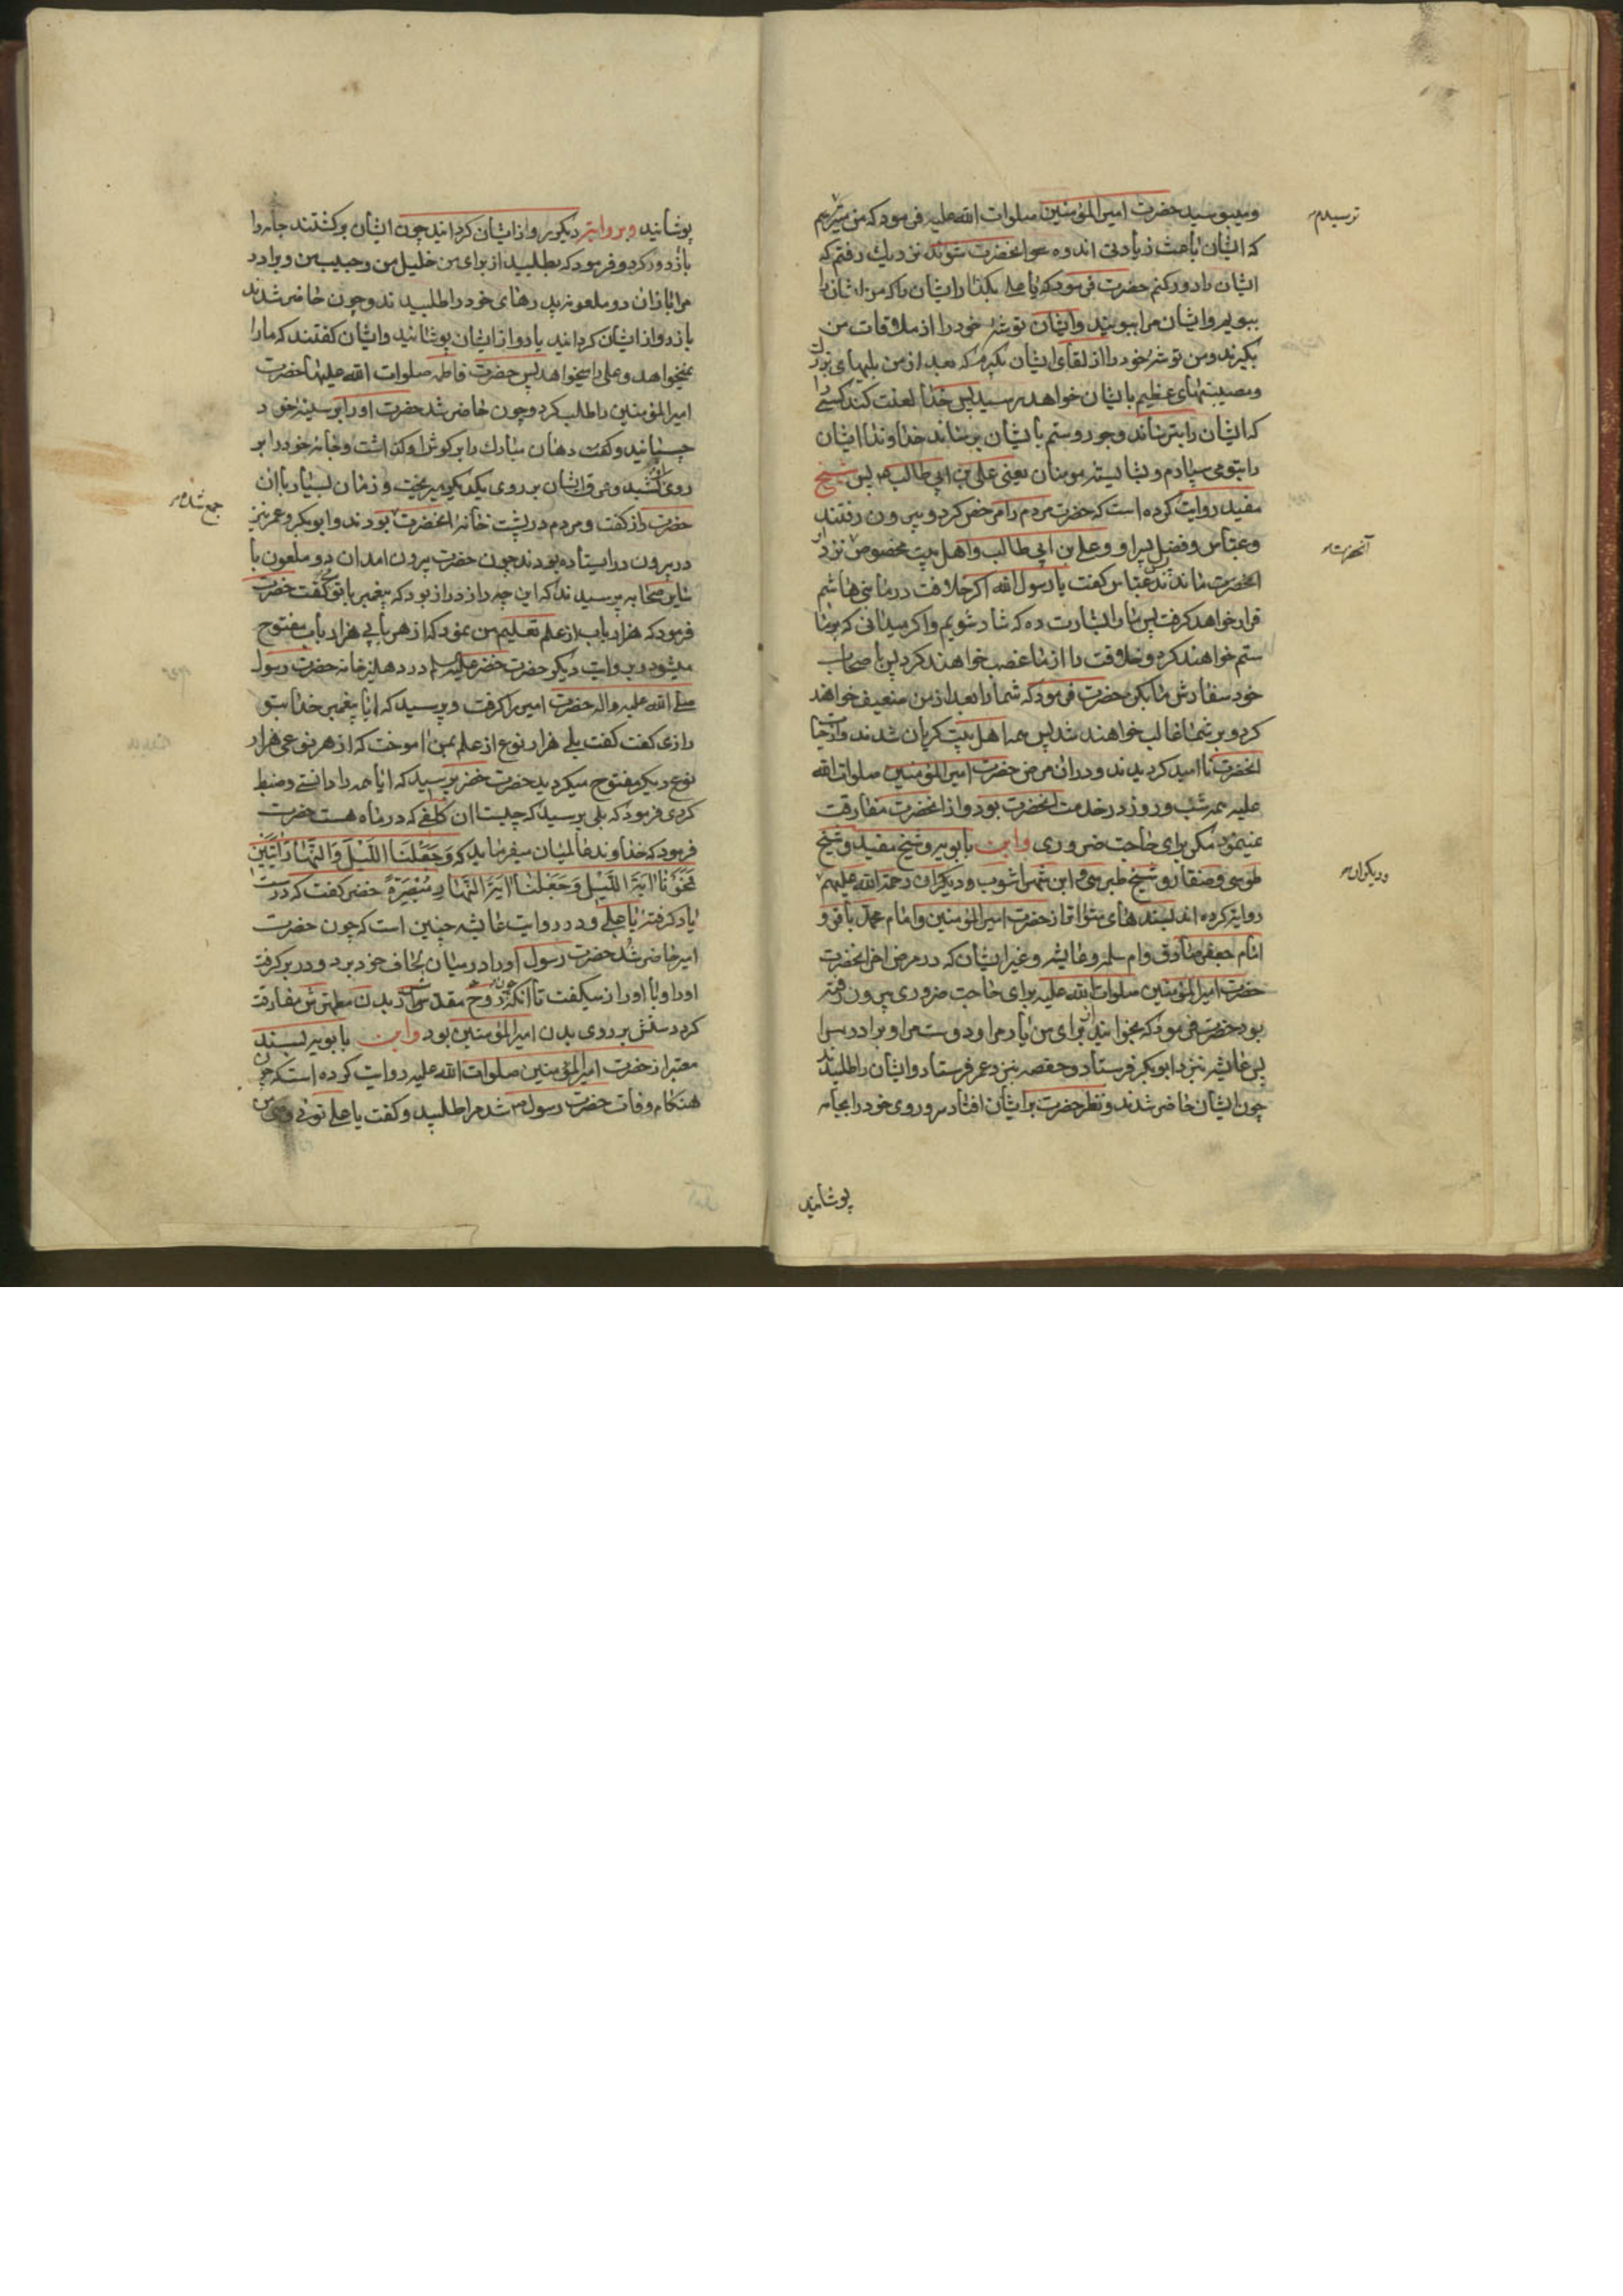 ومیبوسید حضرت امیرالمؤمنین صلوات الله علیه فرمود که من میترسم
ترسیدم
که ایشان باعث زیادتی اندوه آنحضرت شوند نزدیك رفتم که
ایشان را دور کنم حضرت فرمود که یا علی بکذار ایشان را که من ایشان را
ببویم وایشان مرا ببویند وایشان توشهٔ خود را از ملاقات من
بکیرند ومن توشه خود را از لقای ایشان بکیرم که بعد از من بلیهای
ومصیبتهای عظیم بایشان خواهد رسید پس خدا لعنت کند کسی را
که ایشان را بترساند وجور وستم بایشان برساند خداوندا ایشان
را بتو می سپارم وبشایسته مومنان یعنی علی بن ابی طالب پس شیخ
مفید روایت کرده است که حضرت مردم را مرخص کرد وبیرون رفتند
وعباس وفضل پسر او وعلی بن ابی طالب واهل بیت مخصوص نزد
آنحضرت
انحضرت ماندند عباس کفت یا رسول الله اکر خلافت در ما بنی هاشم
قرار خواهد کرفت پس ما را بشارت ده که شاد شویم واکر میدانی که بر ما
ستم خواهند کرد وخلافت را از ما غصب خواهند کرد پس باصحاب
خود سفارش ما بکن حضرت فرمود که شما را بعد از من ضعیف خواهند
کرد وبر شما غالب خواهند شد پس همه اهل بیت کریان شدند واز حیات
انحضرت ناامید کردیدند ودر ان مرض حضرت امیرالمؤمنین صلوات الله
علیه همه شب وروز در خدمت انحضرت بود واز انحضرت مفارقت
نمینمود مکر برای حاجت ضروری وابن بابویه وشیخ مفید وشیخ
طوسی وصفار وشیخ طبرسی وابن شهراشوب ودیکران رحمة الله علیهم
ودیکران
روایت کرده اند بسندهای متواتر از حضرت امیرالمؤمنین وامام محمد باقر و
امام جعفر صادق وام سلمه وعایشه وغیر ایشان که در مرض اخر انحضرت
حضرت امیرالمؤمنین صلوات الله علیه برای حاجت ضروری بیرون رفته
بود حضرت فرمود که بخوانید از برای من یار مرا ودوست مرا وبرادر مرا
پس عایشه بنزد ابوبکر فرستاد وحفصه بنزد عمر فرستاد وایشان را طلبیدند
چون ایشان حاضر شدند ونظر حضرت بر ایشان افتاد سر وروی خود را بجامه
پوشانید
پوشانید وبروایت دیکر رو از ایشان کردانید چون ایشان برکشتند جامه را
باز دور کرد وفرمود که بطلبید از برای من خلیل من وحبیب من وبرادر
مرا باز ان دو ملعونه پدرهای خود را طلبیدند وچون حاضر شدند
باز رو از ایشان کردانید یا رو از ایشان پوشانید وایشان کفتند که ما را
نمیخواهد وعلی را میخواهد پس حضرت فاطمه صلوات الله علیها حضرت
امیرالمؤمنین را طلب کرد وچون حاضر شد حضرت او را بر سینهٔ خود
چسپانید وکفت دهان مبارك را بر کوش او کذاشت وجامه خود را بر
روی کشید وعرق ایشان بر روی یکدیکر میریخت وزمان بسیار باان
حضرت راز کفت ومردم در پشت خانهٔ انحضرت بودند وابوبکر وعمر نیز
جمع شده
در بیرون در ایستاده بودند چون حضرت بیرون امد ان دو ملعون با
سایر صحابه پرسیدند که این چه راز دراز بود که پیغمبر با تو کفت حضرت
فرمود که هزار باب از علم تعلیم من نمود که از هر بابی هزار باب مفتوح
میشود وبروایت دیکر حضرت خضر علیه السلم در دهلیز خانه حضرت رسول
صلی الله علیه واله حضرت امیر را کرفت وپرسید که ایا پیغمبر خدا بتو
رازی کفت کفت بلی هزار نوع از علم بمن اموخت که از هر نوعی هزار
نوع دیکر مفتوح میکردید حضرت خضر پرسید که ایا همه را دانستی وضبط
کردی فرمود که بلی پرسید که چیست ان کلفی که در ماه هست حضرت
فرمود که خداوند عالمیان میفرماید که وَجَعَلْنَا اللَّیْلَ وَالنَّهَارَ آیَتَیْنِ
فَمَحَوْنَا آیَةَ اللَّیْلِ وَجَعَلْنَا آیَةَ النَّهَارِ مُبْصِرَةً خضر کفت که درست
یاد کرفتهٔ یا علی ودر روایت عایشه چنین است که چون حضرت
امیر حاضر شد حضرت رسول او را در میان لحاف خود برد ودر بر کرفت
او را وبا او راز میکفت تا انکه چون روح مقدسش از بدن مطهرش مفارقت
کرد دستش بر روی بدن امیرالمؤمنین بود وابن بابویه بسند
معتبر از حضرت امیرالمؤمنین صلوات الله علیه روایت کرده است که چون
هنکام وفات حضرت رسول شد مرا طلبید وکفت یا علی توئی وصی من